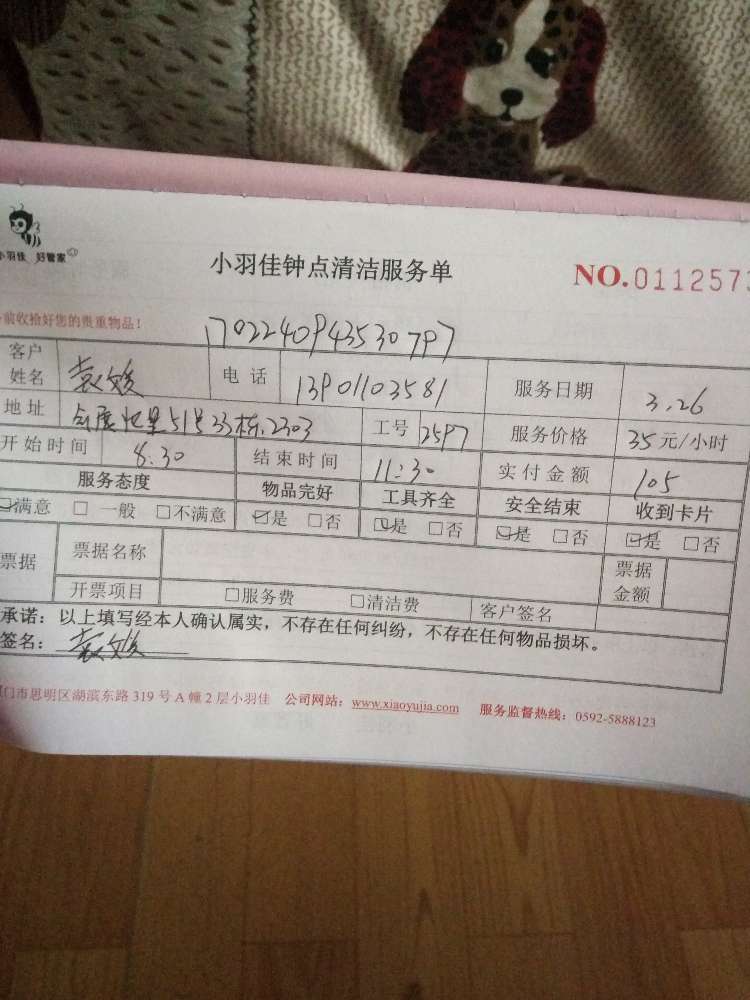 小羽佳 好管家
小羽佳钟点清洁服务单 NO.0112573
前收拾好您的贵重物品！
17022409435307P7
客户姓名 电话 13P01103581 服务日期 3.26
地址 51号33栋.2303 工号 25P7 服务价格 35元/小时
开始时间 8.30 结束时间 11:30 实付金额 105
服务态度 物品完好 工具齐全 安全结束 收到卡片
满意 一般 不满意 是 否 是 否 是 否 是 否
票据 票据名称 票据金额
开票项目 服务费 清洁费 客户签名
承诺：以上填写经本人确认属实，不存在任何纠纷，不存在任何物品损坏。
签名：
门市思明区湖滨东路319号A幢2层小羽佳 公司网站：www.xiaoyujia.com 服务监督热线：0592-5888123